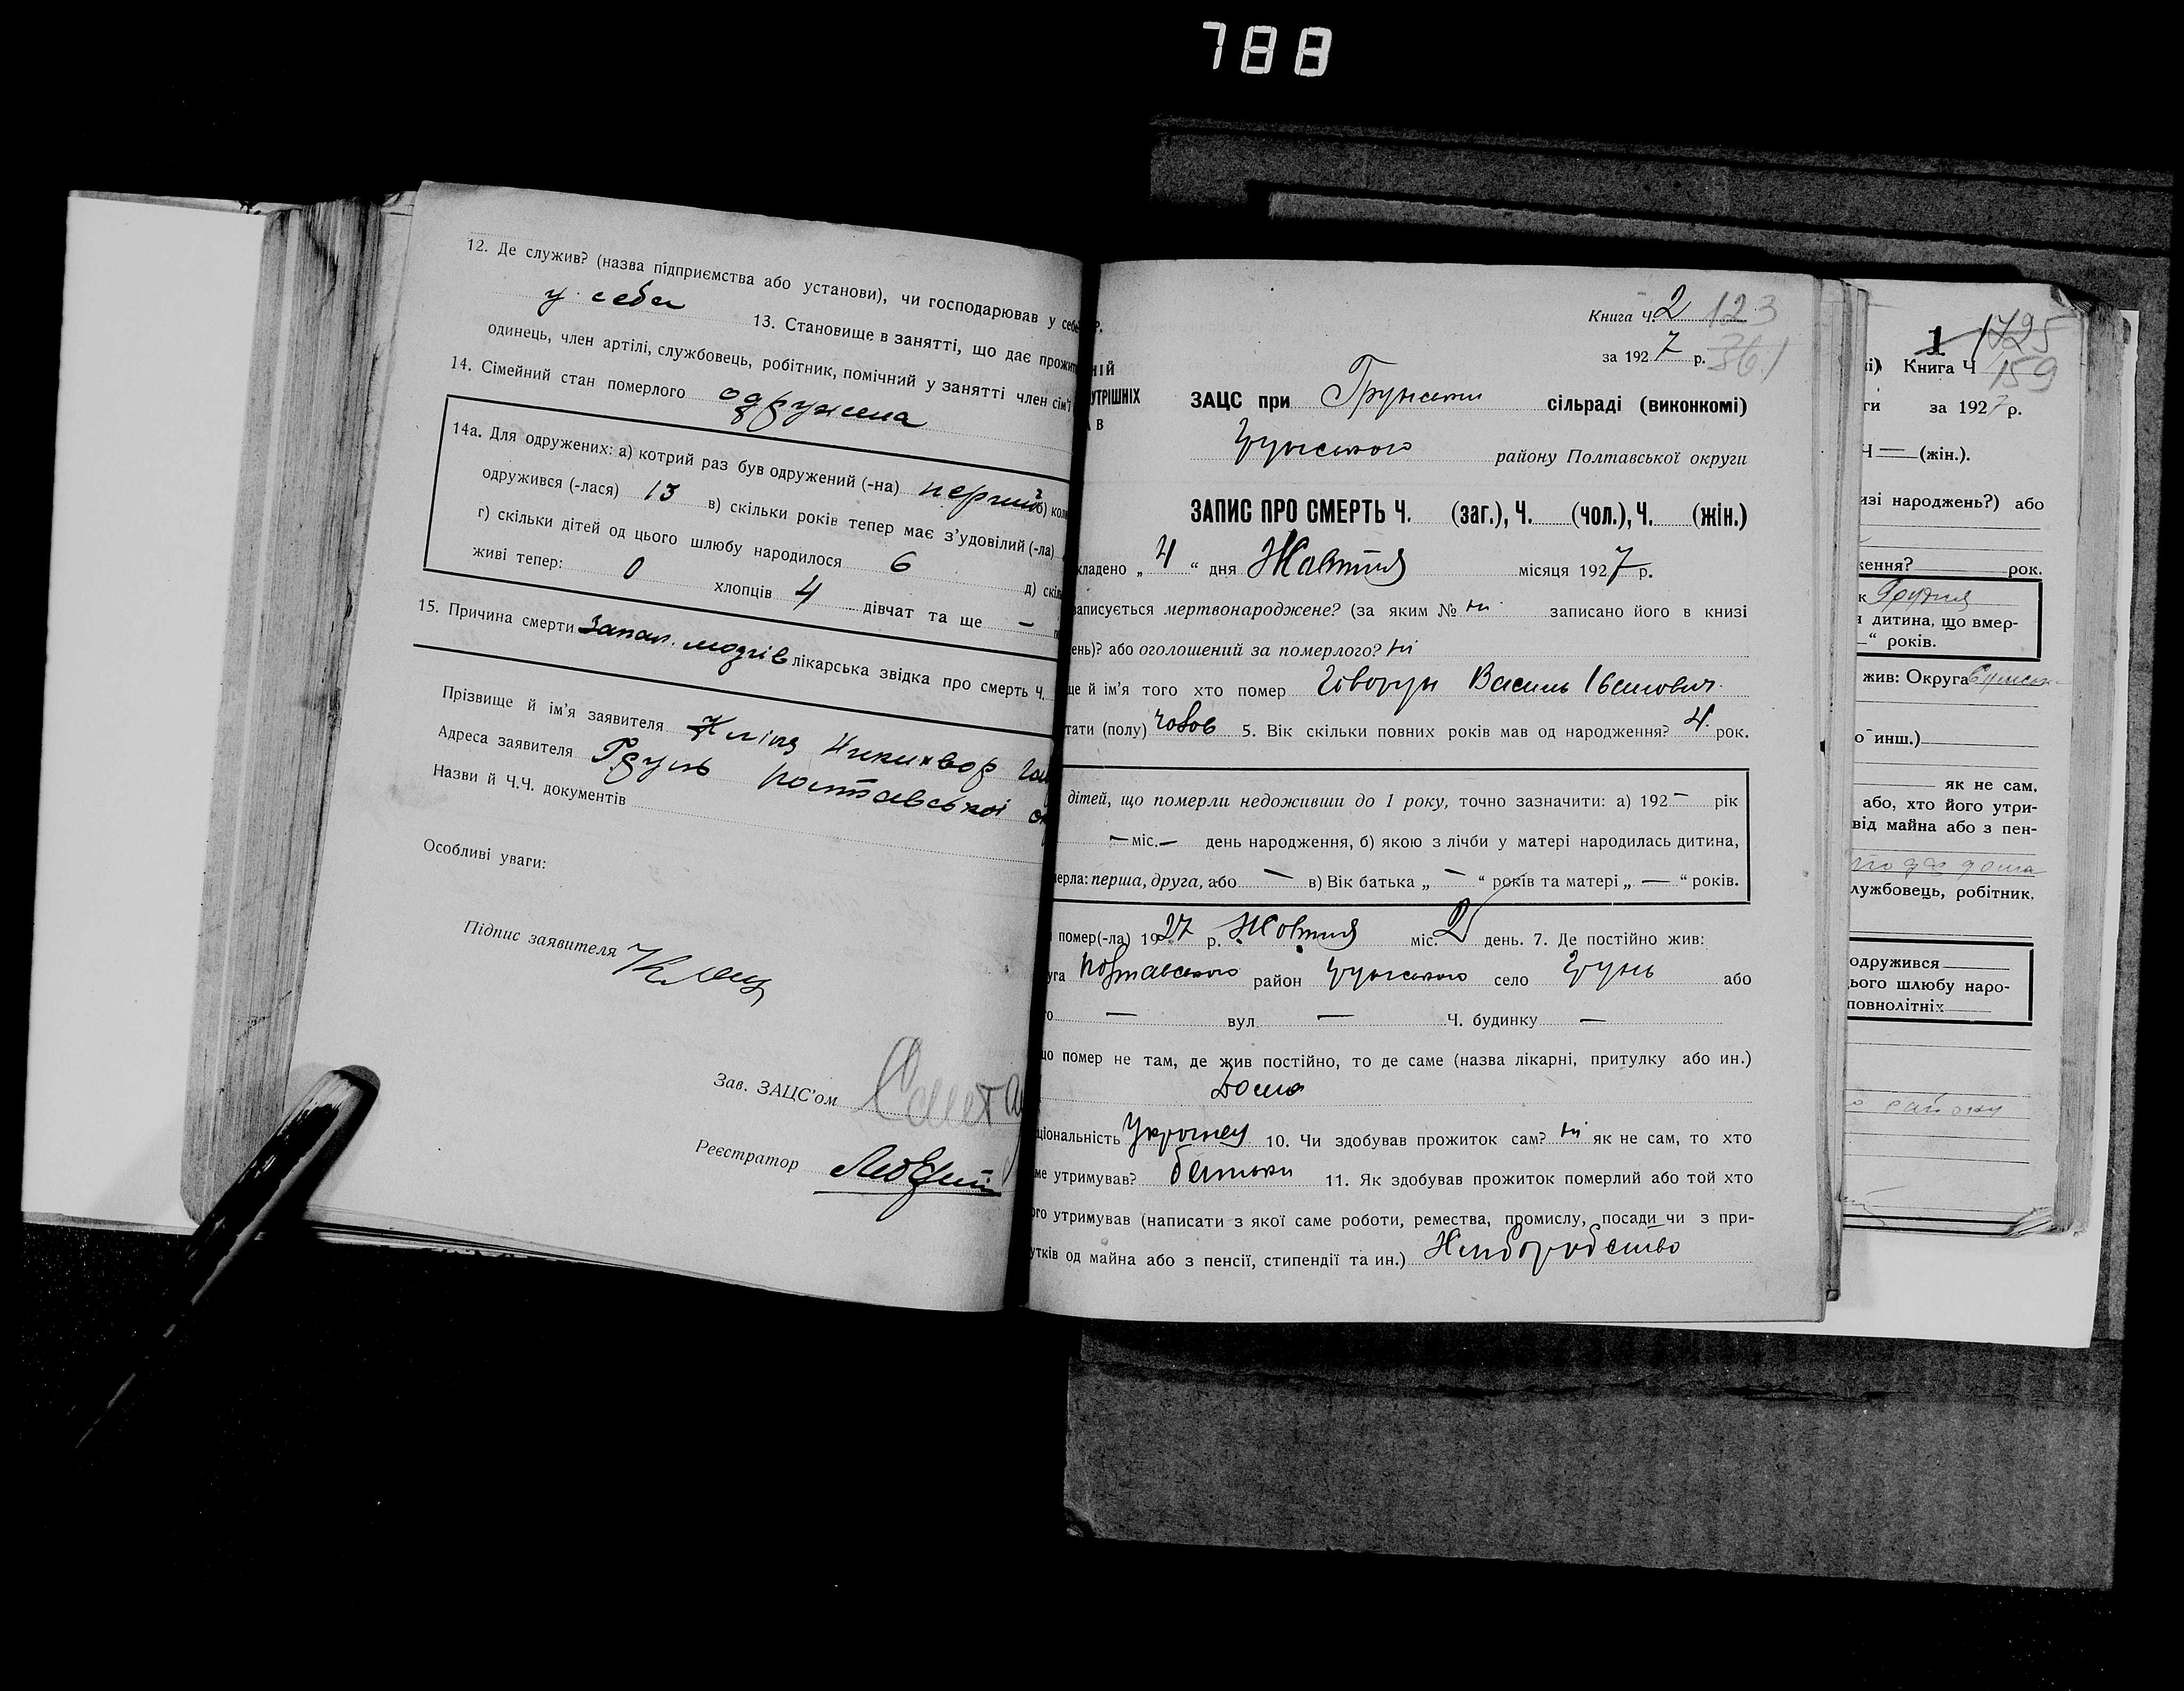 788
12. Де служив? (назва підприємства або установи), чи господарював у себе
у себе 13. Становище в занятті, що дає прожит
одинець, член артілі, службовець, робітник, помічний у занятті член сім'ї
14. Сімейний стан померлого одружена
14а. Для одружених: а) котрий раз був одружений (-на) перший б) кол
одружився (-лася) 13 в) скільки років тепер має з'удовілий (-ла)
г) скільки дітей од цього шлюбу народилося 6 д) скіль
живі тепер: 0 хлопців 4 дівчат та ще —
15. Причина смерти Запал. мозгів лікарська звідка про смерть Ч.
Прізвище й ім'я заявителя
Адреса заявителя Грунь Полтавської
Назви й Ч.Ч. документів
Особливі уваги:
Підпис заявителя
Зав. ЗАЦС'ом
Реєстратор
НІЙ
УТРІШНІХ
В
Книга Ч. 2 123
за 1927 р. 361
ЗАЦС при сільраді (виконкомі)
Грунського району Полтавської округи
ЗАПИС ПРО СМЕРТЬ Ч. (заг.), Ч. (чол.), Ч. (жін.)
кладено „4“ дня Жовтня місяця 1927 р.
записується мертвонароджене? (за яким № ні записано його в книзі
ень)? або оголошений за померлого? ні
ще й ім'я того хто помер Говорун Василь Іванович
тати (полу) чолов 5. Вік скільки повних років мав од народження? 4 рок.
дітей, що померли недоживши до 1 року, точно зазначити: а) 192— рік
— міс. — день народження, б) якою з лічби у матері народилась дитина,
ерла: перша, друга, або — в) Вік батька „—“ років та матері „—“ років.
помер(-ла) 1927 р. Жовтня міс. 2 день. 7. Де постійно жив:
уга Полтавського район Грунського село Грунь або
го — вул — Ч. будинку —
що помер не там, де жив постійно, то де саме (назва лікарні, притулку або ин.)
Дома
ціональність Українец 10. Чи здобував прожиток сам? ні як не сам, то хто
ме утримував? батьки 11. Як здобував прожиток померлий або той хто
ого утримував (написати з якої саме роботи, ремества, промислу, посади чи з при-
утків од майна або з пенсії, стипендії та ин.) Хліборобство
1 1725
і) Книга Ч 159
ги за 1927 р.
Ч — (жін.).
изі народжень?) або
ження? рок.
к Грудня
я дитина, що вмер-
—“ років.
жив: Округа
о инш.)
як не сам,
або, хто його утри-
від майна або з пен-
лужбовець, робітник,
одружився
ього шлюбу наро-
повнолітніх
району